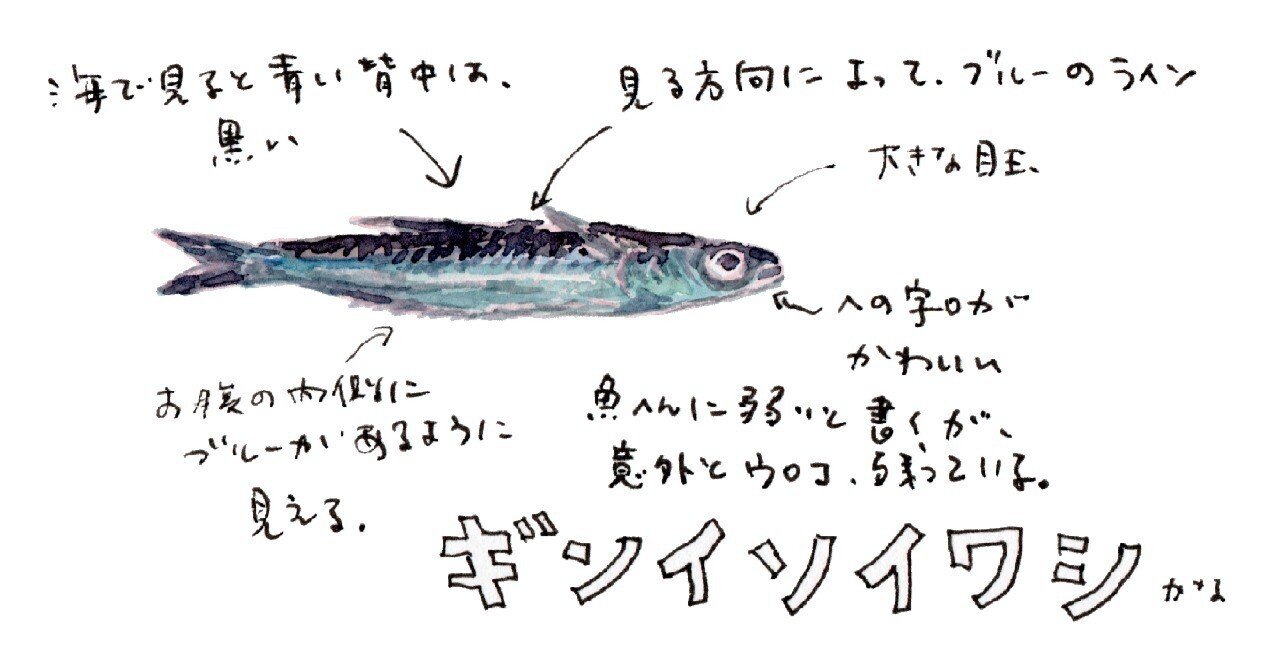 海で見ると青い背中は、
黒い
見る方向によって、ブルーのライン
大きな目玉、
への字口が
かわいい
お腹の内側に
ブルーがあるように
見える。
魚へんに弱いと書くが、
意外とウロコ、残っている。
ギンイソイワシ
かなよ